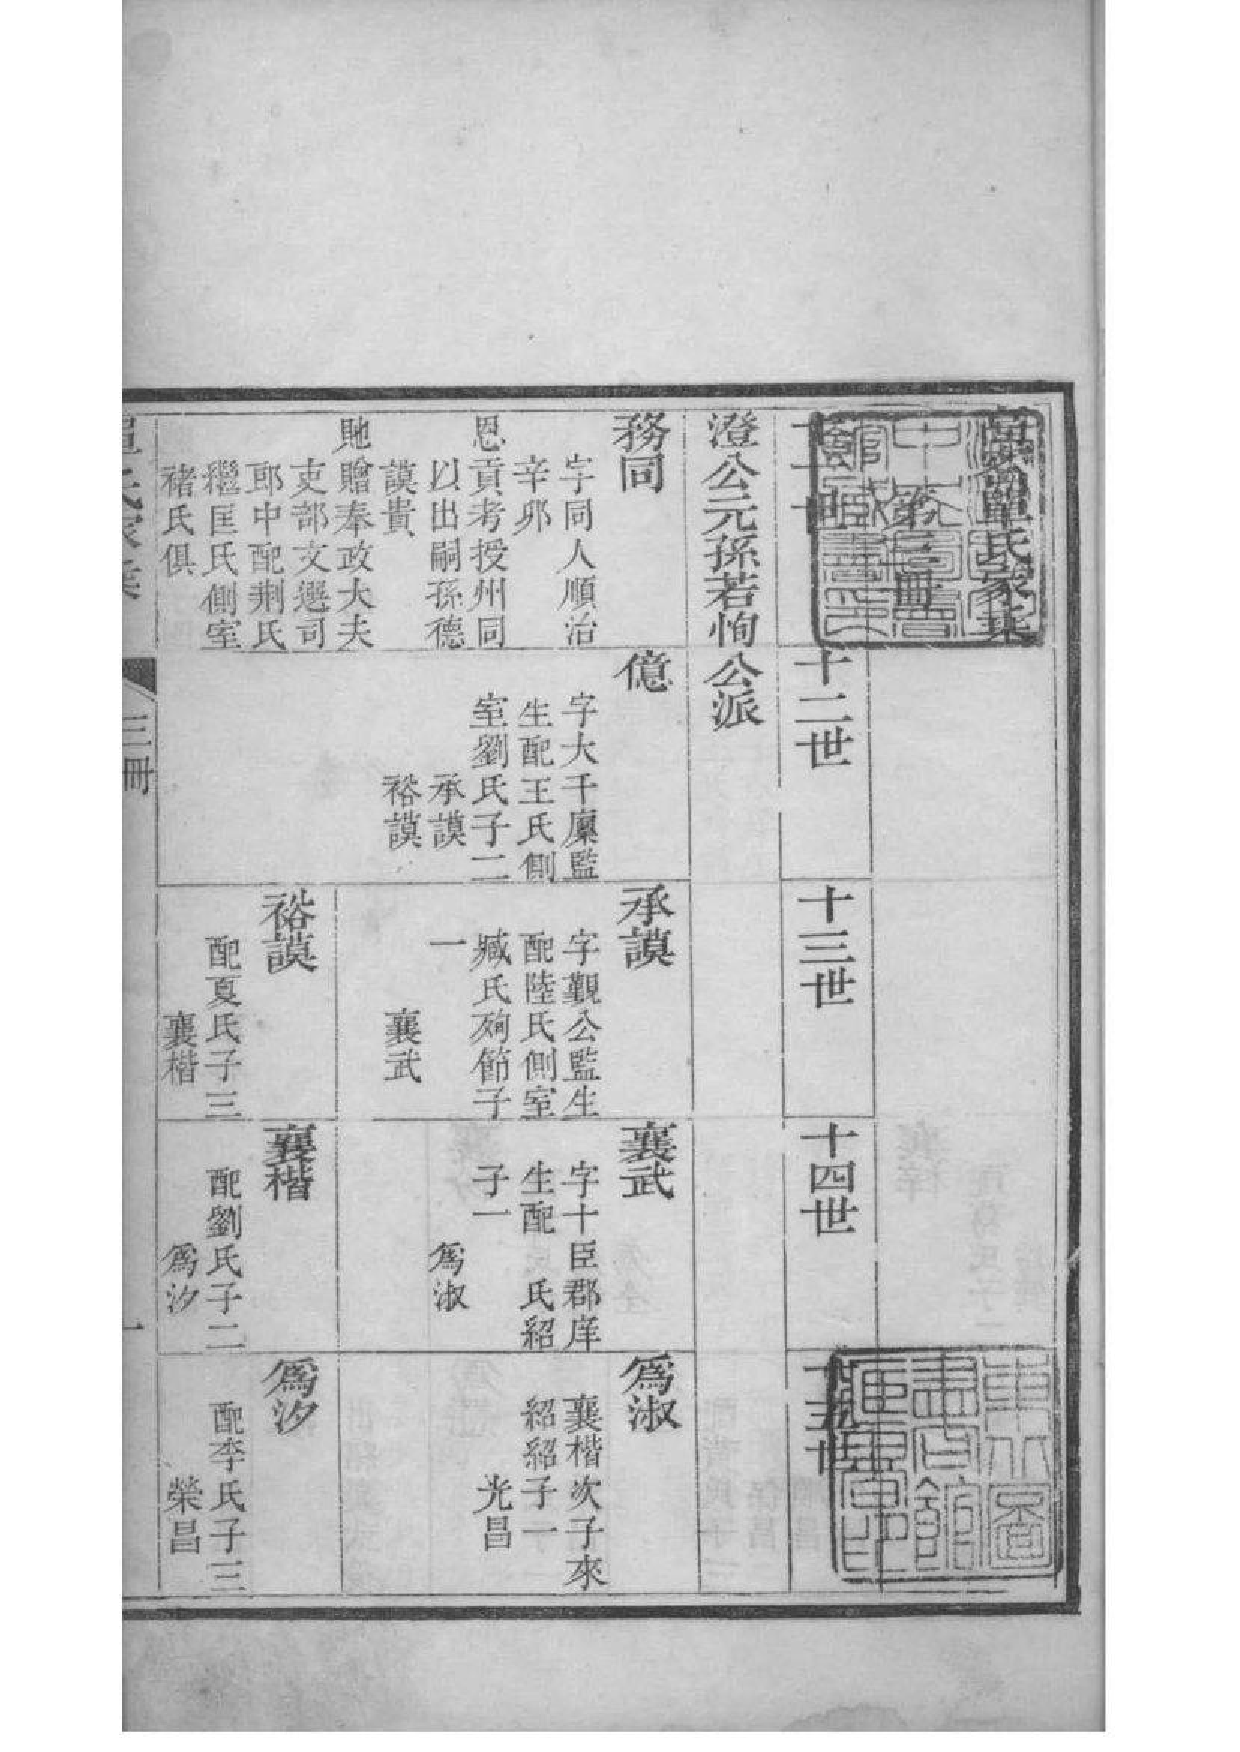 高密單氏家乘
第三冊
十一世
十二世
十三世
十四世
十五世
澄公元孫若恂公派
務同
字同人順治
辛夘
恩貢考授州同
以出嗣孫德
謨貴
貤贈奉政大夫
吏部文選司
郎中配荆氏
繼匡氏側室
禇氏俱
億
字大千廩監
生配王氏側
室劉氏子二
承謨
裕謨
承謨
字觀公監生
配陸氏側室
臧氏殉節子
一
襄武
襄武
字十臣郡庠
生配 氏紹
子一
爲淑
爲淑
襄楷次子來
紹紹子一
光昌
裕謨
配夏氏子三
襄楷
襄楷
配劉氏子二
爲汐
爲汐
配李氏子三
榮昌
單氏家乘
三冊
一